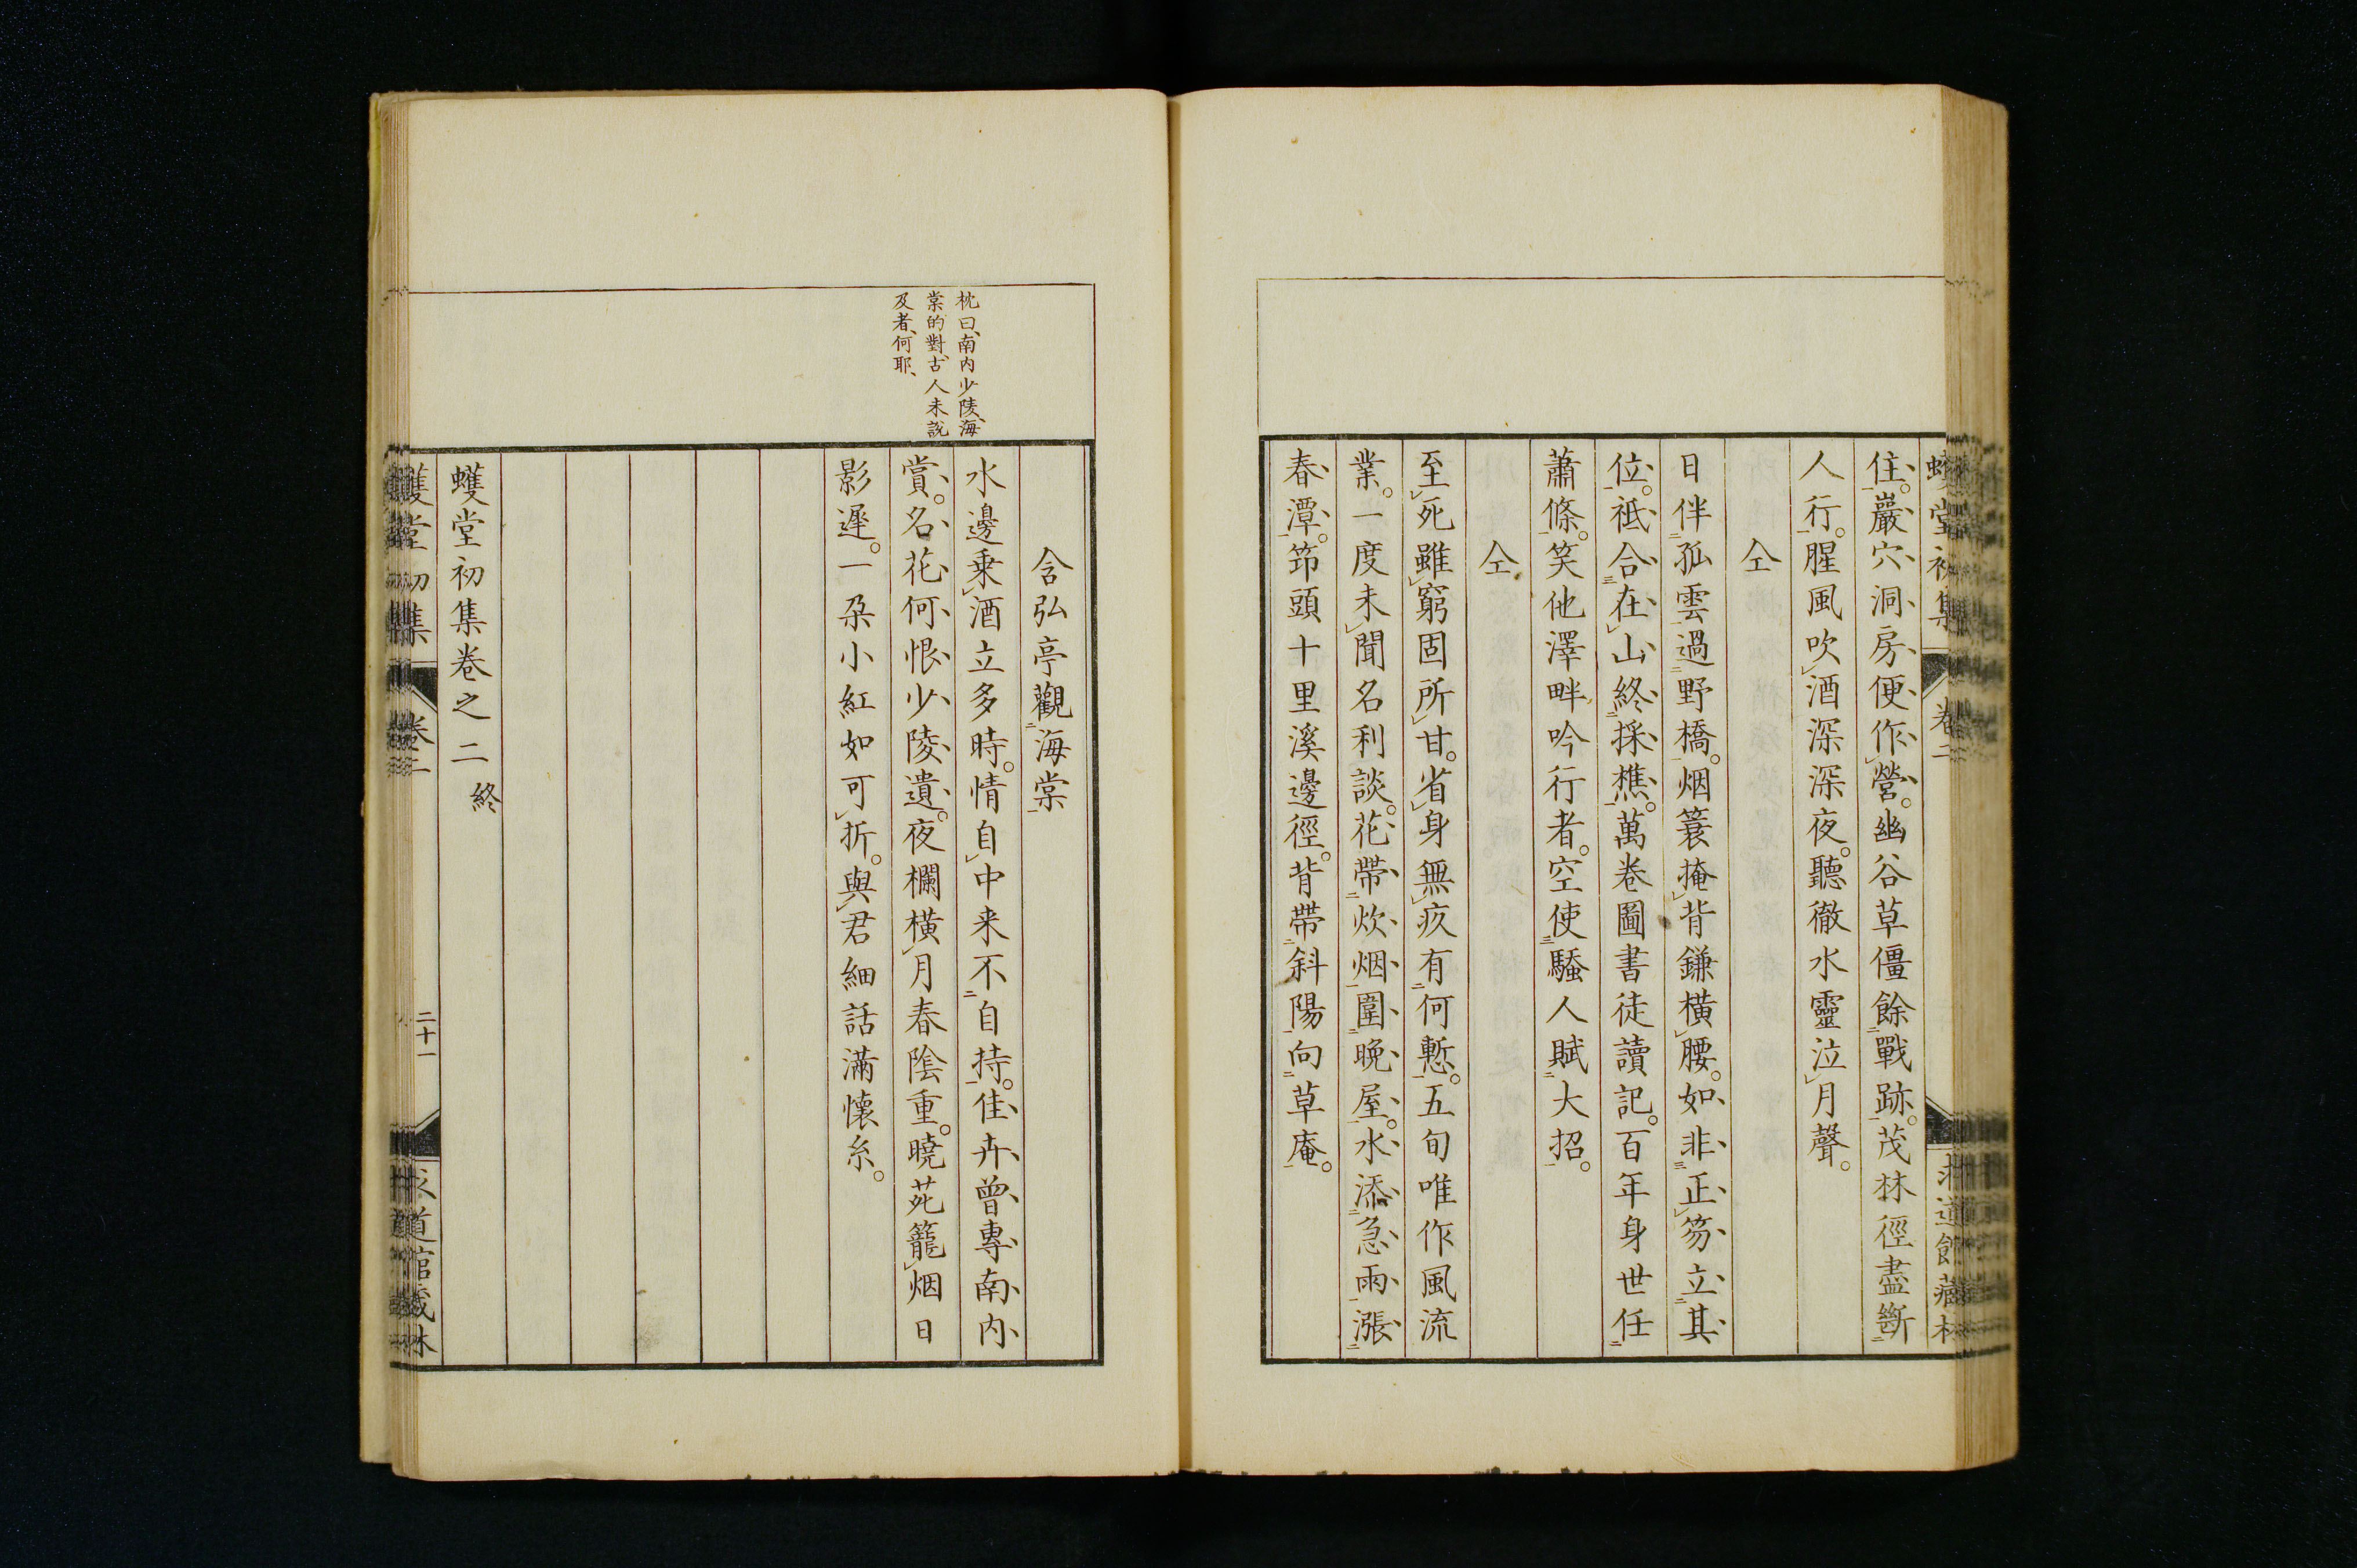 住。巖穴洞房便作營。幽谷草僵餘戰跡。茂林徑盡斷
人行。腥風吹酒深深夜。聽徹水靈泣月聲。
仝
日伴孤雲過野橋。烟蓑掩背鎌橫腰。如非正笏立其
位。祗合在山終採樵。萬卷圖書徒讀記。百年身世任
蕭條。笑他澤畔吟行者。空使騷人賦大招。
仝
至死雖窮固所甘。省身無疚有何慙。五旬唯作風流
業。一度未聞名利談。花帶炊烟圍晚屋。水添急雨漲
春潭。筇頭十里溪邊徑。背帶斜陽向草庵。
枕曰、南内少陵、海
棠的對、古人未說
及者、何耶、
含弘亭觀海棠
水邊乗酒立多時。情自中来不自持。佳卉曾專南内
賞。名花何恨少陵遺。夜欄橫月春陰重。曉苑籠烟日
影遲。一朶小紅如可折。與君細話滿懷糸。
蠖堂初集卷之二終
蠖堂初集 卷二 二十一 求道館藏梓